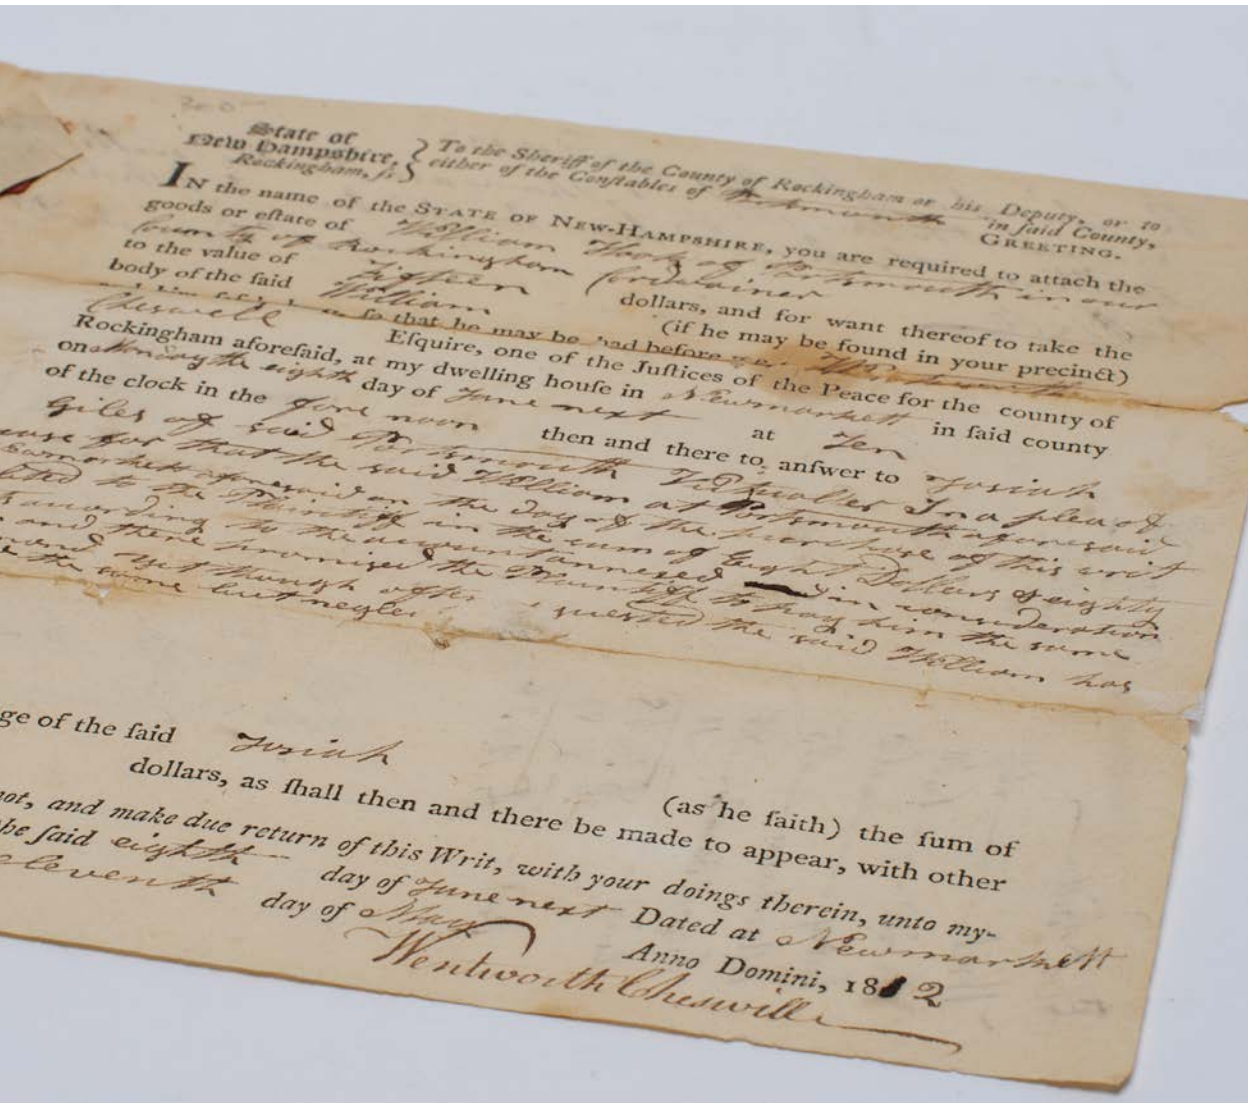 State of
New Hampshire,
Rockingham, ſs.
To the Sheriff of the County of Rockingham or his Deputy, or to
either of the Conſtables of Portsmouth in ſaid County,
GREETING.
IN the name of the STATE OF NEW-HAMPSHIRE, you are required to attach the
goods or eſtate of William Hook of Portsmouth in our
County of Rockingham Cordwainer
to the value of Fifteen dollars, and for want thereof to take the
body of the ſaid William (if he may be found in your precinct)
ſo that he may be had before me Wentworth
Cheswell Eſquire, one of the Juſtices of the Peace for the county of
Rockingham aforeſaid, at my dwelling houſe in Newmarkett in ſaid county
on Monday the eighth day of June next at Ten
of the clock in the fore noon then and there to anſwer to Josiah
Giles of said Portsmouth In a plea of
for that the said William at Portsmouth aforesaid
aforesaid on the day of the purchase of this writ
to the Plaintiff in the sum of Eight Dollars & eighty
according to the account annexed in consideration
and there promised the Plaintiff to pay him the same
yet though often requested the said William has
the same but neglec
ge of the ſaid Josiah (as he ſaith) the ſum of
dollars, as ſhall then and there be made to appear, with other
not, and make due return of this Writ, with your doings therein, unto my-
he ſaid eighth day of June next Dated at Newmarkett
eleventh day of May Anno Domini, 1812
Wentworth Cheswill